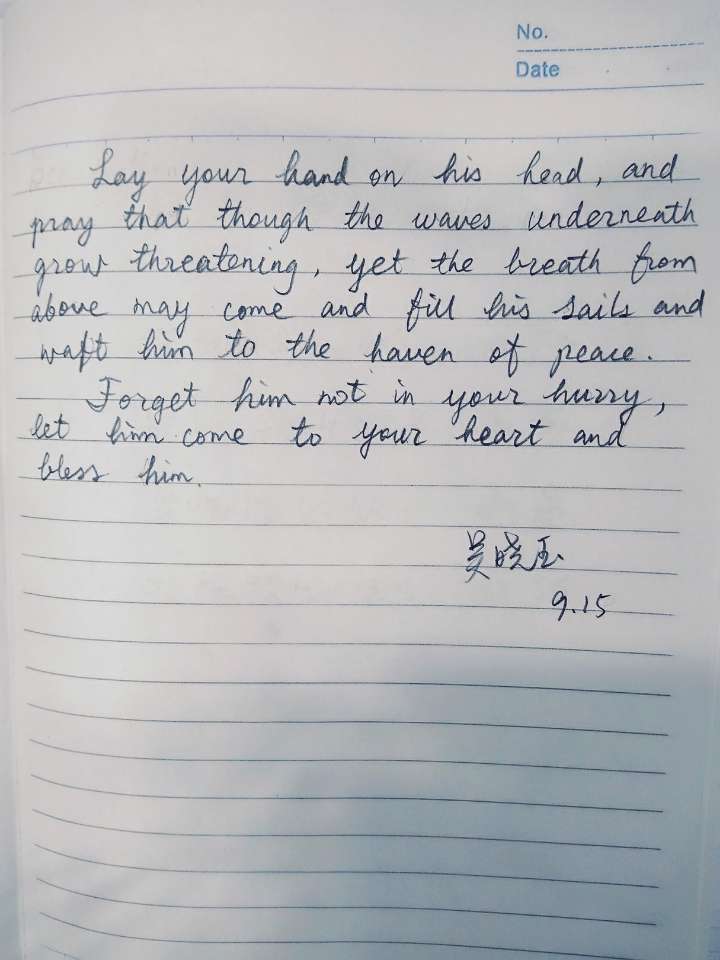 No.
Date
Lay your hand on his head, and
pray that though the waves underneath
grow threatening, yet the breath from
above may come and fill his sails and
waft him to the haven of peace.
Forget him not in your hurry,
let him come to your heart and
bless him.
吴晓玉
9.15